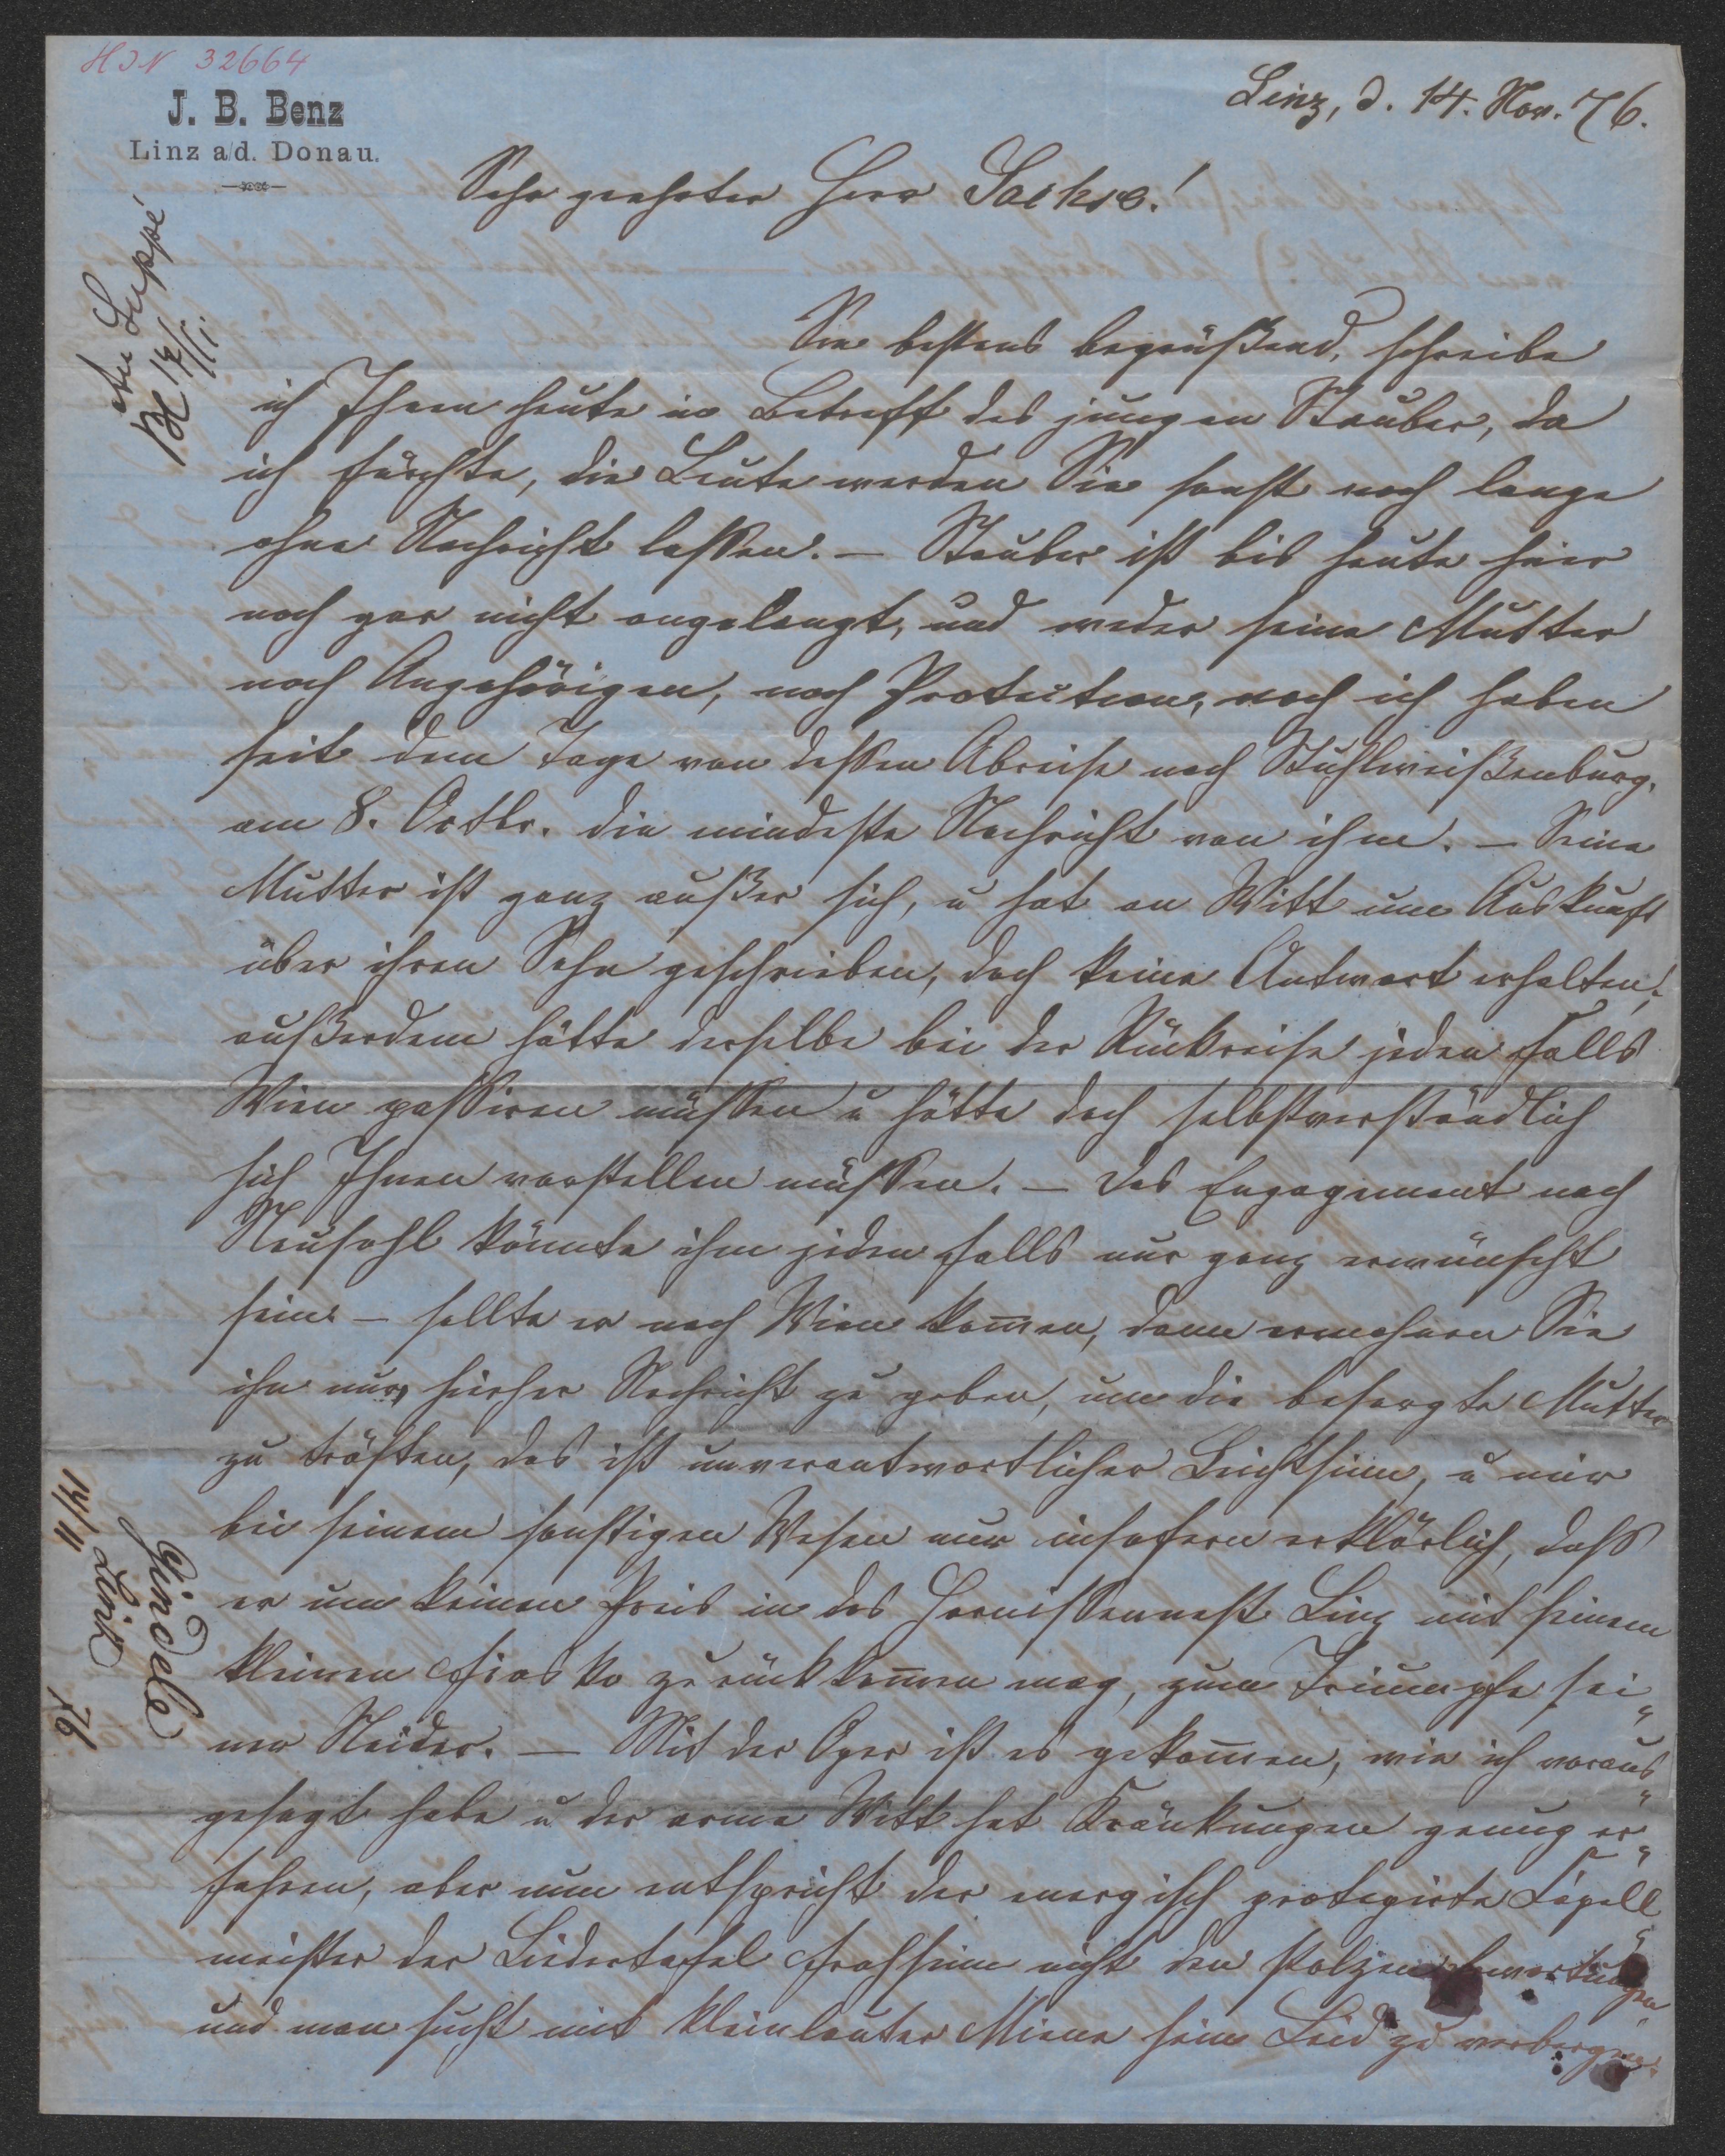 HIN 32664
J. B. Benz
Linz a/d. Donau.
Linz, d. 14. Nov. 76.
Sehr geehrter Herr Sachse!
Sie bestens begrüßend, schreibe
ich Ihnen heute in Betreff des jungen Stauber, da
ich fürchte, die Leute werden Sie sonst noch lange
ohne Nachricht lassen. — Stauber ist bis heute hier
noch gar nicht angelangt, und weder seine Mutter
noch Angehörigen, noch Protectoren, noch ich haben
seit dem Tage von dessen Abreise nach Stuhlweißenburg,
am 8. Octbr. die mindeste Nachricht von ihm. — Seine
Mutter ist ganz außer sich, u hat an Witt um Auskunft
über ihren Sohn geschrieben, doch keine Antwort erhalten;
außerdem hätte derselbe bei der Rückreise jeden Falls
Wien passiren müssen u hätte doch selbstverständlich
sich Ihnen vorstellen müssen. — Das Engagement nach
Neusohl könnte ihm jeden Falls nur ganz erwünscht
sein. — sollte er nach Wien kom̅en, dann ermahnen Sie
ihn nur, hierher Nachricht zu geben, um die besorgte Mutter
zu trösten, das ist unverantwortlicher Leichtsinn, u mir
bei seinem sonstigen Wesen nur insofern erklärlich, dass
er um keinen Preis in das Hornissennest Linz mit seinem
kleinen Fiasko zurückkom̅en mag, zum Triumpfe sei„
ner Neider. — Mit der Oper ist es gekom̅en, wie ich voraus„
gesagt habe u der arme Witt hat Kränkungen genug er„
fahren, aber nun entspricht der energisch protegirte Capell„
meister der Liedertafel Frohsinn nicht den stolzen Erwartungen
und man sucht mit kleinlauter Miene sein Leid zu verbergen.
An Suppé
17/11.
14/11 Linz 76